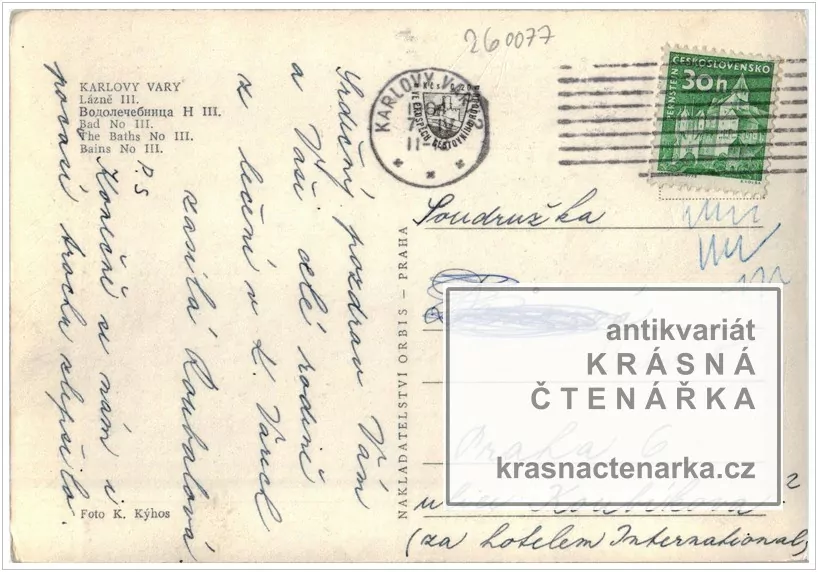 260077
KARLOVY VARY
Lázně III.
Водолечебница Н III.
Bad No III.
The Baths No III.
Bains No III.
Srdečný pozdrav Vám
a Vaší celé rodině
z léčení v K. Varech
zasílá Roubalová
P.S
Konečně se nám i
počasí trochu zlepšilo.
Foto K. Kýhos
NAKLADATELSTVÍ ORBIS – PRAHA
KARLOVY VARY 2
ČESKOSLOVENSKO
30h
PERNŠTEJN
Soudružka
antikvariát
KRÁSNÁ
ČTENÁŘKA
Praha 6
krasnactenarka.cz
ulice
(za hotelem International)